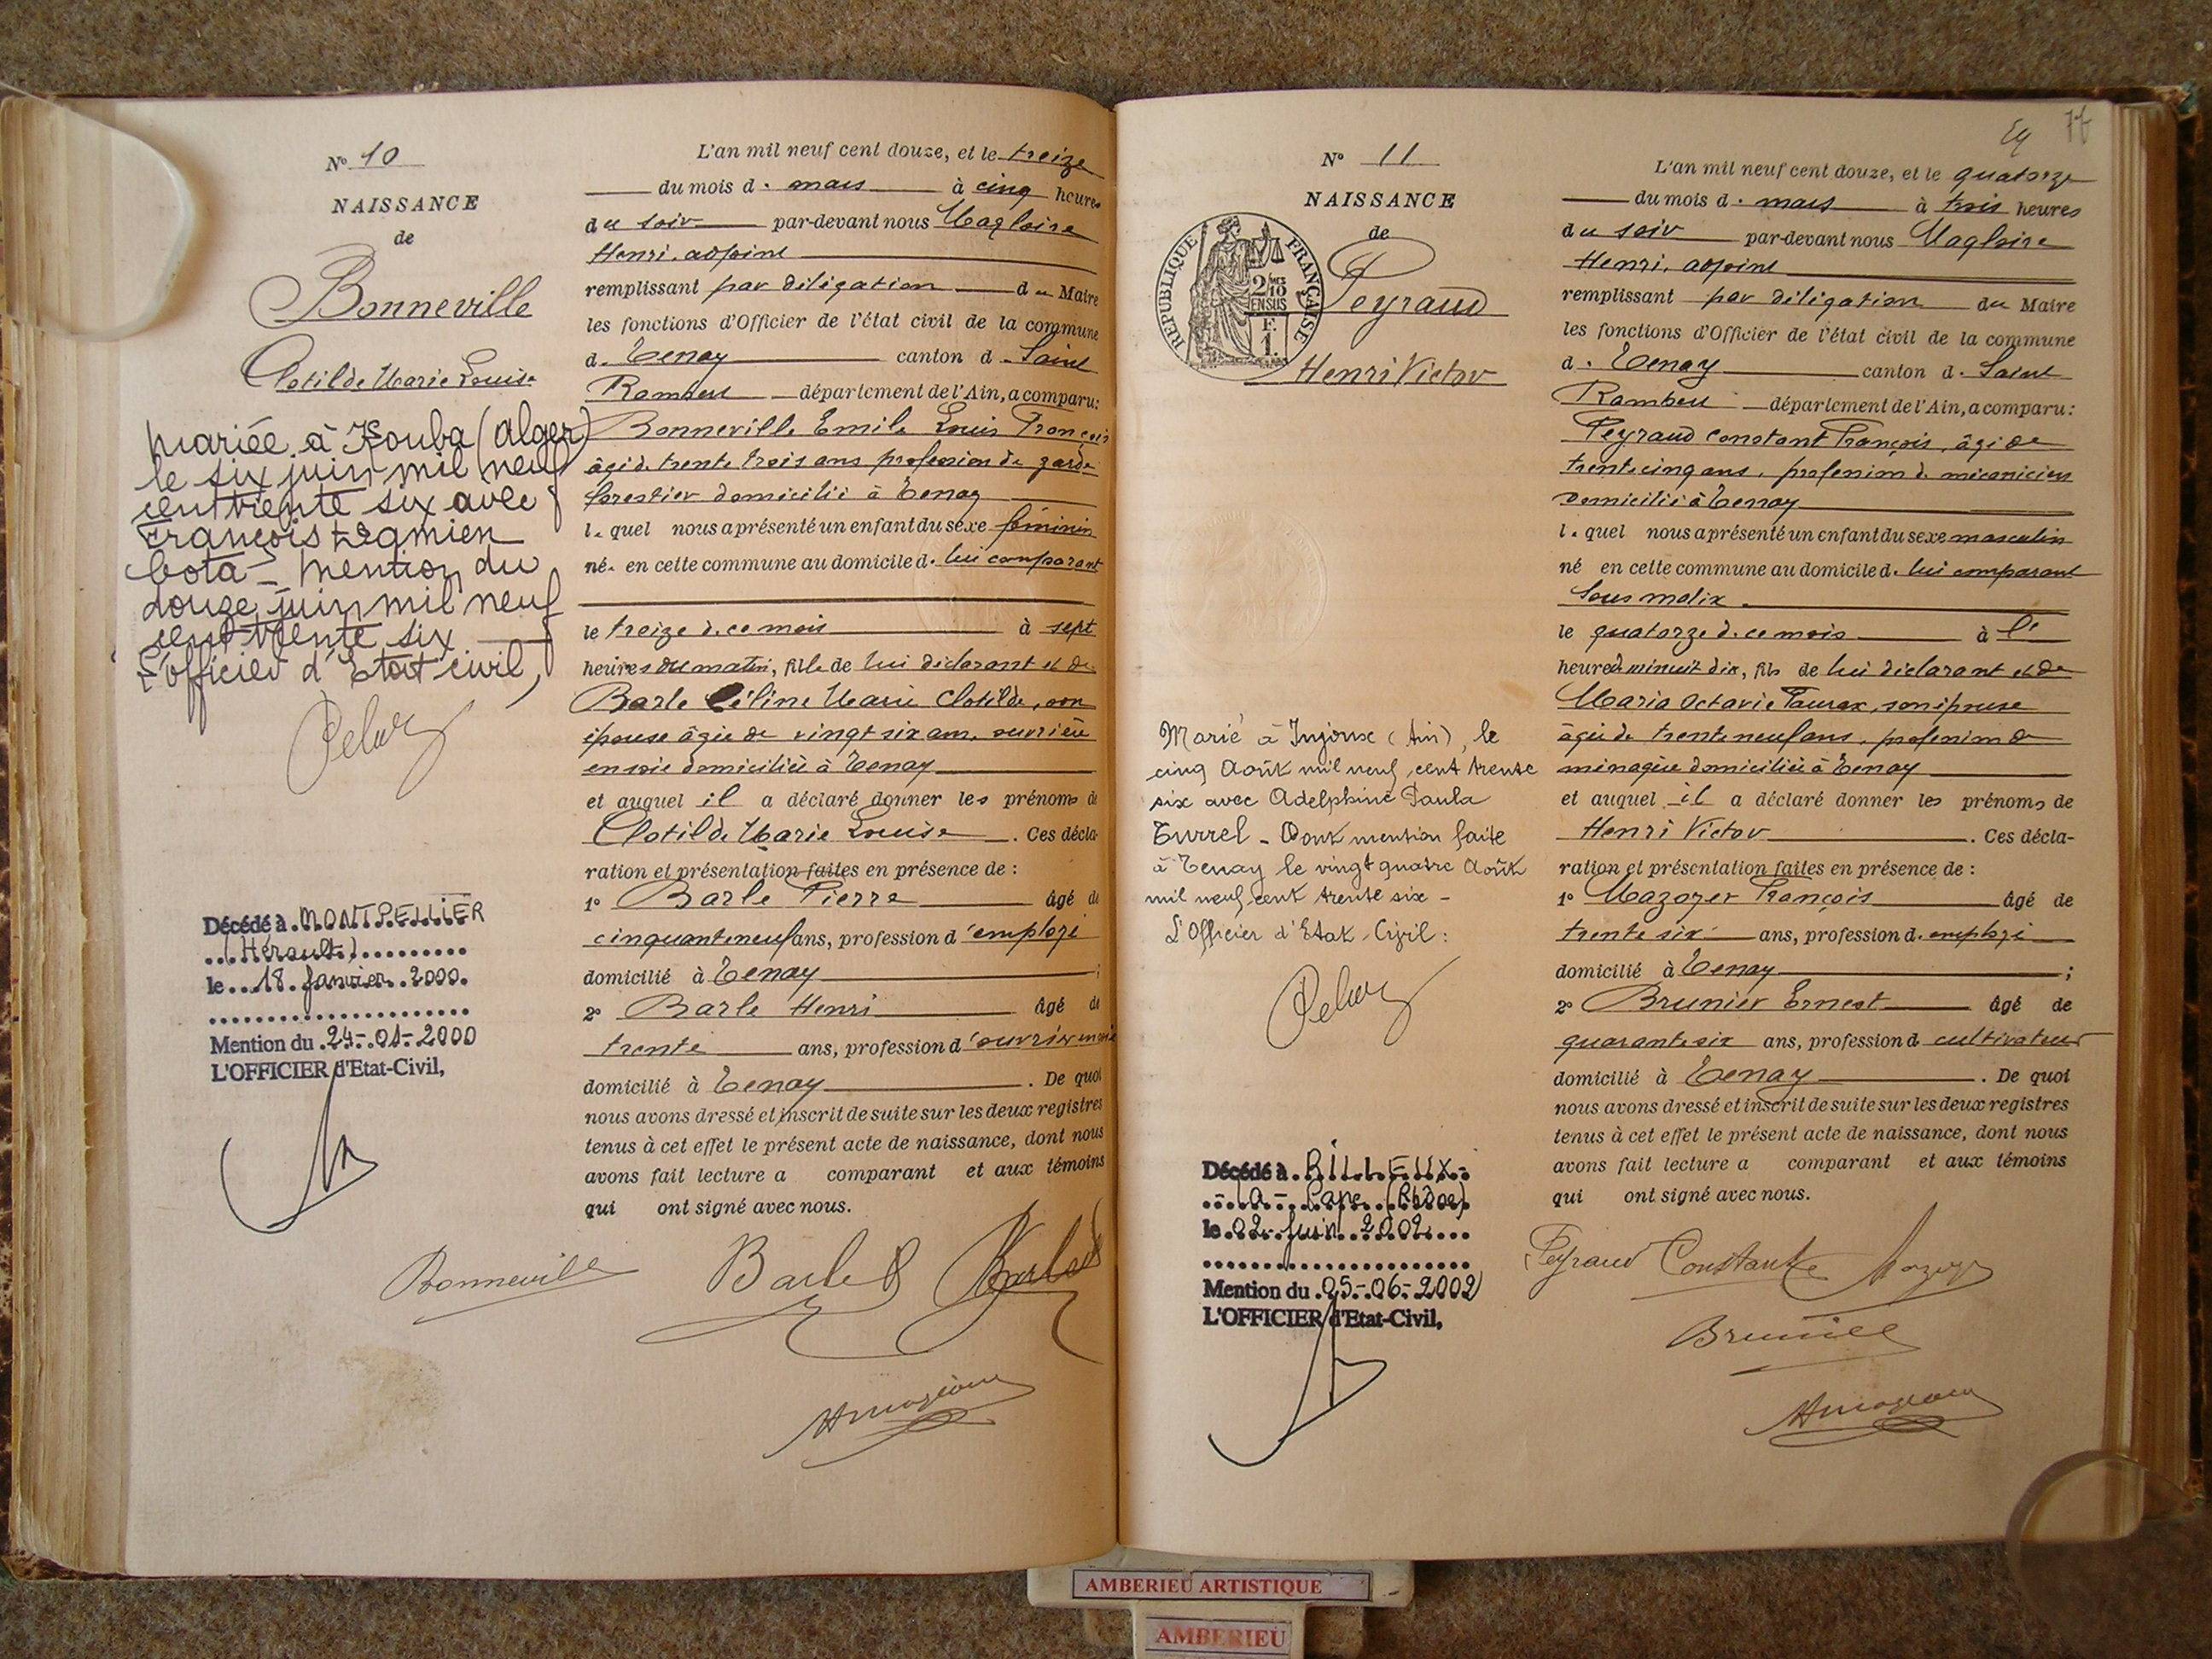 N° 10
NAISSANCE
de
Bonneville
Clotilde Marie Louise
mariée à Kouba (Alger)
le six juin mil neuf
cent trente six avec
François
Cota - Mention du
douze juin mil neuf
cent trente six
L'officier d'Etat civil,
Décédé à MONTPELLIER
(Hérault)
le 18 Janvier 2000.
Mention du 24-01-2000
L'OFFICIER d'Etat-Civil,
L'an mil neuf cent douze, et le treize
du mois d. mars à cinq heures
du soir par-devant nous Magloire
Henri, adjoint
remplissant par délégation du Maire
les fonctions d'Officier de l'état civil de la commune
d. Tenay canton d. Saint
Rambert département de l'Ain, a comparu:
Bonneville Emile Louis François
âgé de trente trois ans profession de garde
forestier domicilié à Tenay
lequel nous a présenté un enfant du sexe féminin
née en cette commune au domicile de lui comparant
le treize de ce mois à sept
heures du matin, fille de lui déclarant et de
Barle Céline Marie Clotilde, son
épouse âgée de vingt six ans, ouvrière
en soie domiciliée à Tenay
et auquel il a déclaré donner les prénoms de
Clotilde Marie Louise. Ces décla-
ration et présentation faites en présence de :
1° Barle Pierre âgé de
cinquante neuf ans, profession d'employé
domicilié à Tenay ;
2° Barle Henri âgé de
trente ans, profession d'ouvrier en soie
domicilié à Tenay. De quoi
nous avons dressé et inscrit de suite sur les deux registres
tenus à cet effet le présent acte de naissance, dont nous
avons fait lecture a comparant et aux témoins
qui ont signé avec nous.
Bonneville Barle Barle
HMagloire
24 76
N° 11
NAISSANCE
de
REPUBLIQUE FRANÇAISE
2/10 EN SUS
F. 1.
Peyraud
Henri Victor
Marié à Injoux (Ain), le
cinq Août mil neuf cent trente
six avec Adelphine Paula
Turrel - Dont mention faite
à Tenay le vingt quatre Août
mil neuf cent trente six -
L'Officier d'Etat-Civil :
Décédé à RILLEUX-
-la-Pape (Rhône)
le 02 Juin 2002
Mention du 05-06-2002
L'OFFICIER d'Etat-Civil,
L'an mil neuf cent douze, et le quatorze
du mois d. mars à trois heures
du soir par-devant nous Magloire
Henri, adjoint
remplissant par délégation du Maire
les fonctions d'Officier de l'état civil de la commune
d. Tenay canton d. Saint
Rambert département de l'Ain, a comparu:
Peyraud Constant François, âgé de
trente cinq ans, profession de mécanicien
domicilié à Tenay
lequel nous a présenté un enfant du sexe masculin
né en cette commune au domicile de lui comparant
Sous
le quatorze de ce mois à l'
heure de minuit dix, fils de lui déclarant et de
Maria Octavie, son épouse
âgée de trente neuf ans, profession de
ménagère domiciliée à Tenay
et auquel il a déclaré donner les prénoms de
Henri Victor. Ces décla-
ration et présentation faites en présence de :
1° Mazoyer François âgé de
trente six ans, profession d. employé
domicilié à Tenay ;
2° Brunier Ernest âgé de
quarante six ans, profession d. cultivateur
domicilié à Tenay. De quoi
nous avons dressé et inscrit de suite sur les deux registres
tenus à cet effet le présent acte de naissance, dont nous
avons fait lecture a comparant et aux témoins
qui ont signé avec nous.
Peyraud Constant Mazoyer
Brunier
HMagloire
AMBERIEU ARTISTIQUE
AMBERIEU